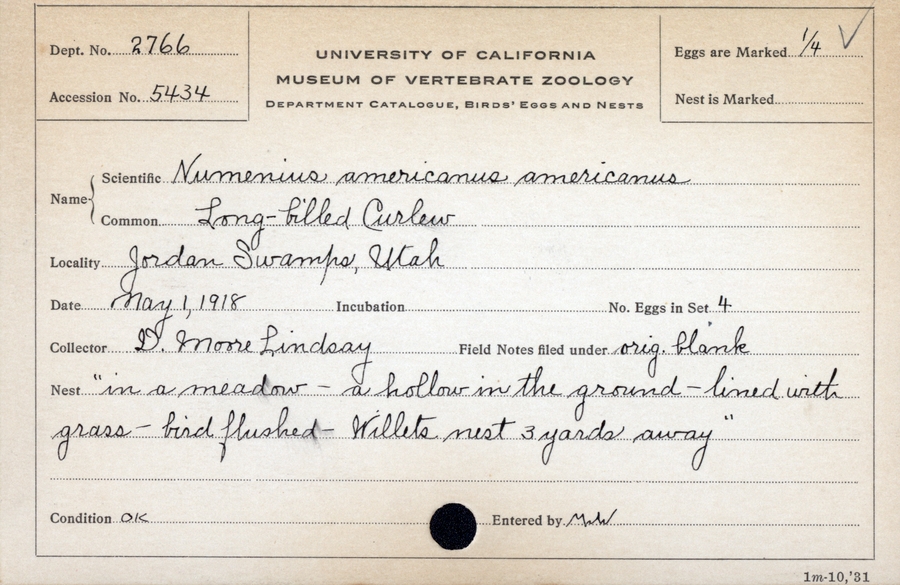 Dept. No. 2766
Accession No. 5434
UNIVERSITY OF CALIFORNIA
MUSEUM OF VERTEBRATE ZOOLOGY
DEPARTMENT CATALOGUE, BIRDS' EGGS AND NESTS
Eggs are Marked 1/4 ✓
Nest is Marked
Name
Scientific Numenius americanus americanus
Common Long-billed Curlew
Locality Jordan Swamps, Utah
Date May 1, 1918 Incubation No. Eggs in Set 4
Collector D. Moore Lindsay Field Notes filed under orig. blank
Nest "in a meadow – a hollow in the ground – lined with
grass – bird flushed – Willets nest 3 yards away"
Condition OK Entered by
1m-10,'31